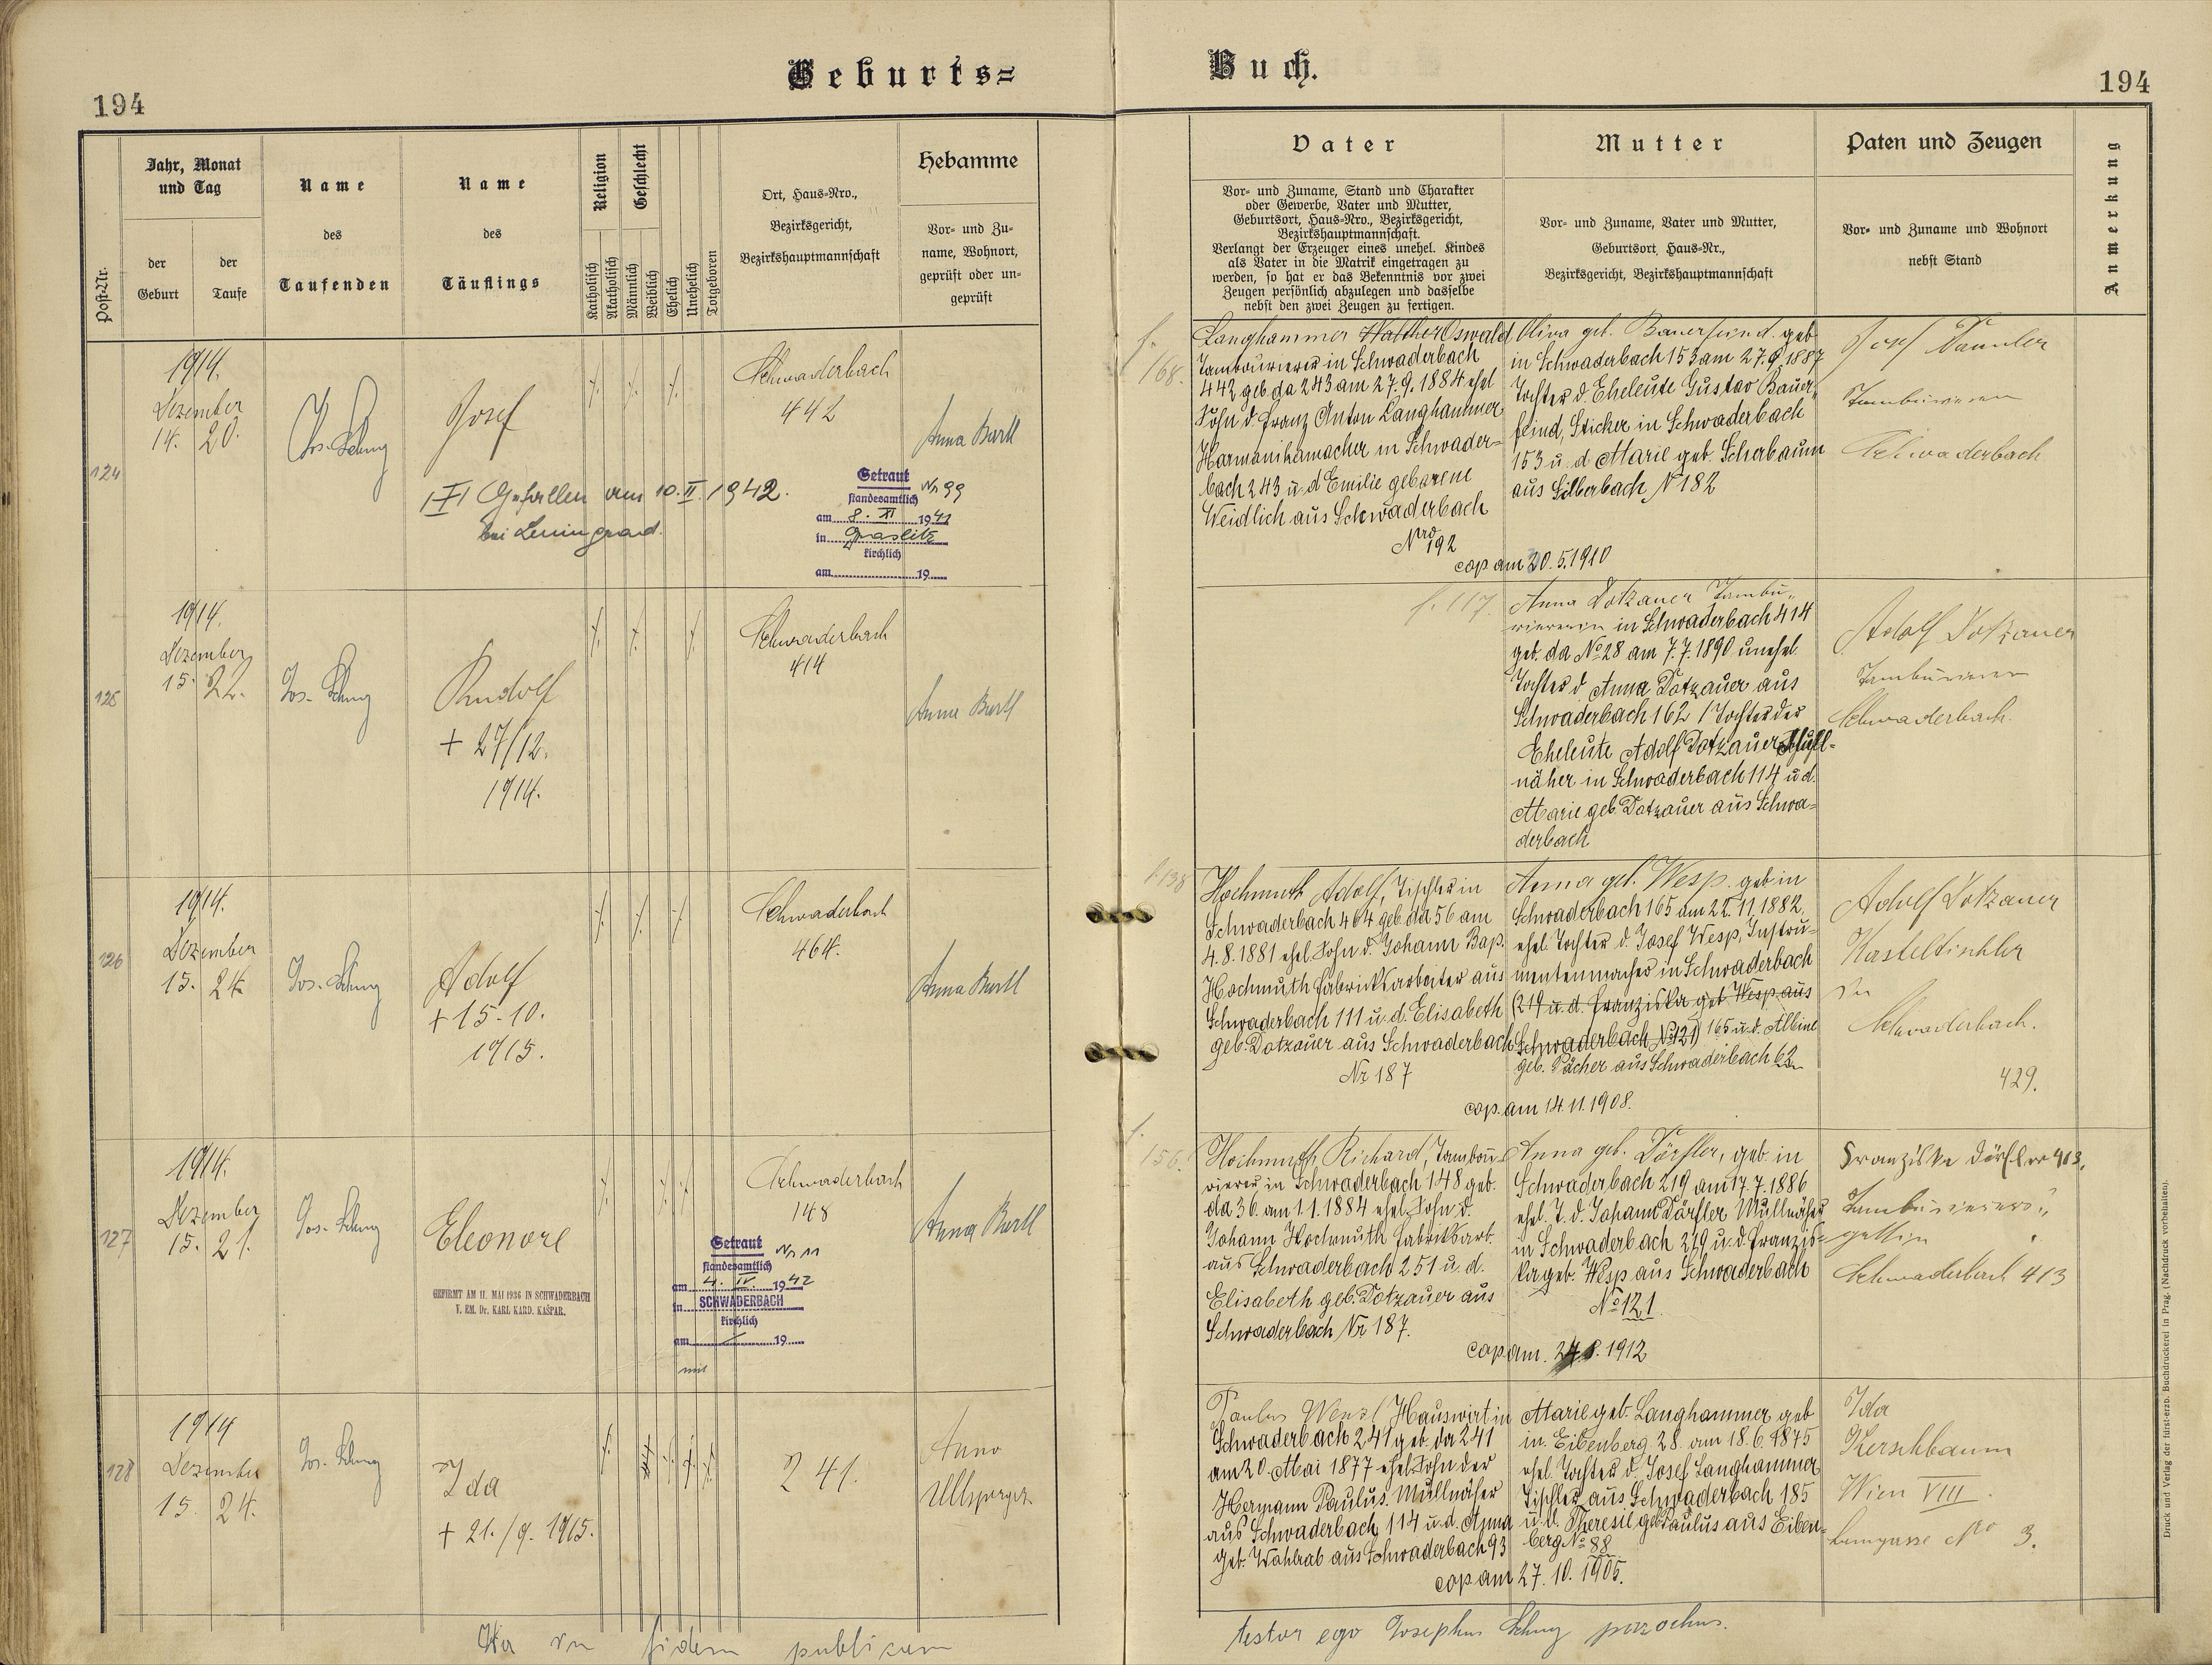 Geburts=
Buch.
194
194
Post-Nr.
Jahr, Monat
und Tag
der
Geburt
der
Taufe
Name
des
Taufenden
Name
des
Täuflings
Religion
Katholisch
Akatholisch
Geschlecht
Männlich
Weiblich
Ehelich
Unehelich
Totgeboren
Ort, Haus-Nro.,
Bezirksgericht,
Bezirkshauptmannschaft
Hebamme
Vor- und Zu-
name, Wohnort,
geprüft oder un-
geprüft
Vater
Vor- und Zuname, Stand und Charakter
oder Gewerbe, Vater und Mutter,
Geburtsort, Haus-Nro., Bezirksgericht,
Bezirkshauptmannschaft.
Verlangt der Erzeuger eines unehel. Kindes
als Vater in die Matrik eingetragen zu
werden, so hat er das Bekenntnis vor zwei
Zeugen persönlich abzulegen und dasselbe
nebst den zwei Zeugen zu fertigen.
Mutter
Vor- und Zuname, Vater und Mutter,
Geburtsort, Haus-Nr.,
Bezirksgericht, Bezirkshauptmannschaft
Paten und Zeugen
Vor- und Zuname und Wohnort
nebst Stand
Anmerkung
124
1914.
Dezember
14. 20.
Jos. Schmg
Josef
Gefallen am 10. II. 1942.
bei Leningrad.
Schwaderbach
442
Anna Bartl
Getraut Nr. 99
standesamtlich
am 8. XI 1941
in Graslitz
kirchlich
am 19
f.
168.
Langhammer Walther Oswald
Tambourierer in Schwaderbach
442 geb. da 243 am 27.9.1884 ehel
Sohn d. Franz Anton Langhammer
Harmonikamacher in Schwader=
bach 243 u. d Emilie geborene
Weidlich aus Schwaderbach
Nro 192
cop am 20.5.1910
Oliva geb. Bauerfeind. geb
in Schwaderbach 153 am 27.9.1887
Tochter d. Eheleute Gustav Bauer-
feind, Sticker in Schwaderbach
153 u. d Marie geb. Scherbaum
aus Silberbach N 182
Josef
Schwaderbach
125
1914.
Dezember
15. 22.
Jos. Schmg
Rudolf
+ 27/12.
1914.
Schwaderbach
414
Anna Bartl
f. 117.
Anna Dotzauer Tambu„
riererin in Schwaderbach 414
geb. da No 28 am 7.7.1890 unehel.
Tochter d Anna Dotzauer aus
Schwaderbach 162 / Tochter der
Eheleute Adolf Dotzauer Mull=
näher in Schwaderbach 114 u d.
Marie geb. Dotzauer aus Schwa=
derbach
Adolf Dotzauer
Tamburierer
Schwaderbach.
126
1914.
Dezember
15. 24.
Jos. Schmg
Adolf
+ 15.10.
1915.
Schwaderbach
464.
Anna Bartl
f. 138
Hochmuth Adolf, Tischler in
Schwaderbach 464 geb. da 56 am
4.8.1881 ehel Sohn d. Johann Bap.
Hochmuth Fabrikksarbeiter aus
Schwaderbach 111 u. d. Elisabeth
geb. Dotzauer aus Schwaderbach
Nr. 187
cop. am 14.11.1908.
Anna geb. Wesp. geb in
Schwaderbach 165 am 22.11.1882,
ehel. Tochter d. Josef Wesp, Instru=
mentenmacher in Schwaderbach
(219 u. d. Franziska geb Wesp aus
Schwaderbach No 121) 165 u. d. Albine
geb. Pächer aus Schwaderbach 62
Adolf Dotzauer
Kasteltischler
in
Schwaderbach.
429.
127
1914.
Dezember
15. 21.
Jos. Schmg
Eleonore
GEFIRMT AM 11. MAI 1936 IN SCHWADERBACH
V. EM. Dr. KARL KARD. KAŠPAR.
Schwaderbach
148
Anna Bartl
Getraut Nr. 11
standesamtlich
am 4. IV. 1942
in SCHWADERBACH
kirchlich
am 19
mit
f.
156.
Hochmuth Richard, Tambou-
rierer in Schwaderbach 148 geb.
da 36. am 1.1.1884 ehel. Sohn d.
Johann Hochmuth Fabriksarb.
aus Schwaderbach 251 u. d.
Elisabeth geb. Dotzauer aus
Schwaderbach Nr. 187.
cop am. 24.8.1912
Anna geb. Dörfler, geb. in
Schwaderbach 219 am 17.7.1886
ehel. T. d. Johann Dörfler Mullnäher
in Schwaderbach 219 u. d. Franzis=
ka geb. Wesp aus Schwaderbach
No 121.
Franziska Dörfler 413.
Tamburierers„
gattin
Schwaderbach 413
128
1914
Dezember
15. 24.
Jos. Schmg
Ida
+ 21./9. 1915.
241.
Anna
Ullsperger
Paulus Wenzl Hauswirt in
Schwaderbach 241 geb. da 241
am 20 Mai 1877 ehel Sohn der
Hermann Paulus. Mullnäher
aus Schwaderbach 114 u. d. Anna
geb. Wohlrab aus Schwaderbach 93
cop am 27.10.1905.
Marie geb. Langhammer geb
in. Eibenberg 28. am 18.6.1875
ehel. Tochter d. Josef Langhammer
Tischler aus Schwaderbach 185
u. d. Theresie geb Paulus aus Eiben=
berg No 88
Ida
Kerschbaum
Wien VIII.
No 3.
Ita in fidem publicam
testor ego Josephus Schmg parochus.
Druck und Verlag der fürst-erzb. Buchdruckerei in Prag. (Nachdruck vorbehalten).